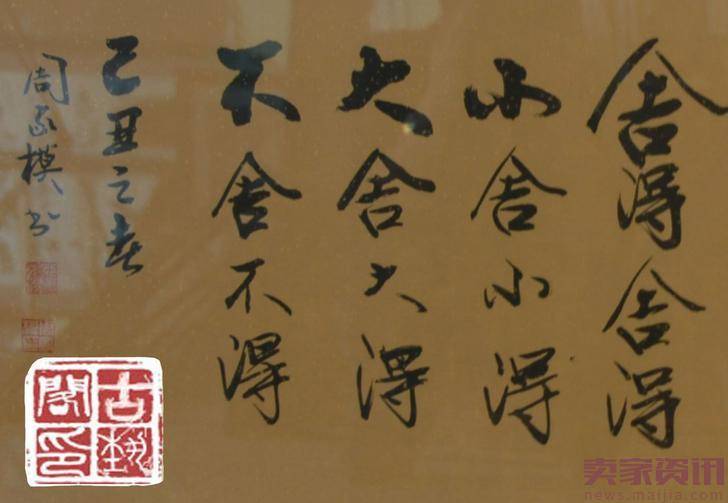 舍得舍得
小舍小得
大舍大得
不舍不得
己丑之春
周 模书
古艺阁印
卖家资讯
news.maijia.com